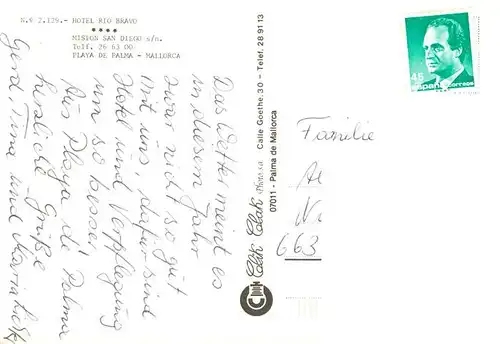 N.º 2.129.- HOTEL RIO BRAVO
****
MISION SAN DIEGO s/n.
Telf. 26 63 00
PLAYA DE PALMA - MALLORCA
Das Wetter meint es
in diesem Jahr
zwar nicht so gut
mit uns, dafür sind
Hotel und Verpflegung
um so besser.
Aus Playa de Palma
herzliche Grüße
Gerd, Tima und
Clik Clak
Calle Goethe, 30 - Telef. 28 91 13
07011 - Palma de Mallorca
45
España correos
Familie
663